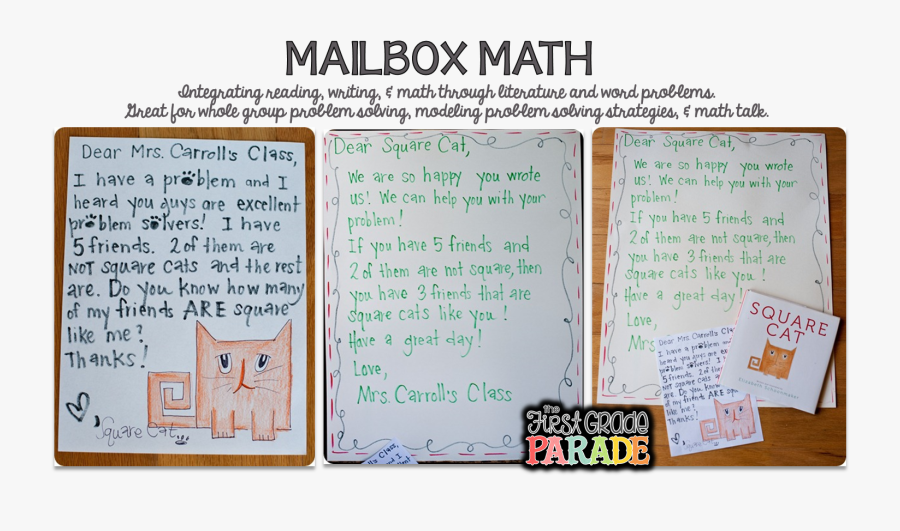 MAILBOX MATH
Integrating reading, writing, & math through literature and word problems.
Great for whole group problem solving, modeling problem solving strategies, & math talk.
Dear Mrs. Carroll's Class,
I have a problem and I
heard you guys are excellent
problem solvers! I have
5 friends. 2 of them are
NOT square cats and the rest
are. Do you know how many
of my friends ARE square
like me?
Thanks!
Square Cat
Dear Square Cat,
We are so happy you wrote
us! We can help you with your
problem!
If you have 5 friends and
2 of them are not square, then
you have 3 friends that are
square cats like you!
Have a great day!
Love,
Mrs. Carroll's Class
Class,
and I
Dear Square Cat,
We are so happy you wrote
us! We can help you with your
problem!
If you have 5 friends and
2 of them are not square, then
you have 3 friends that are
square cats like you!
Have a great day!
Love,
Mrs
Dear Mrs. Carroll's Class
I have a problem and I
heard you guys are excellent
problem solvers! I have
5 friends. 2 of the
NOT square cats and
are. Do you know
of my friends ARE squ
like me?
Thanks!
SQUARE
CAT
the
FIRST GRADE
PARADE